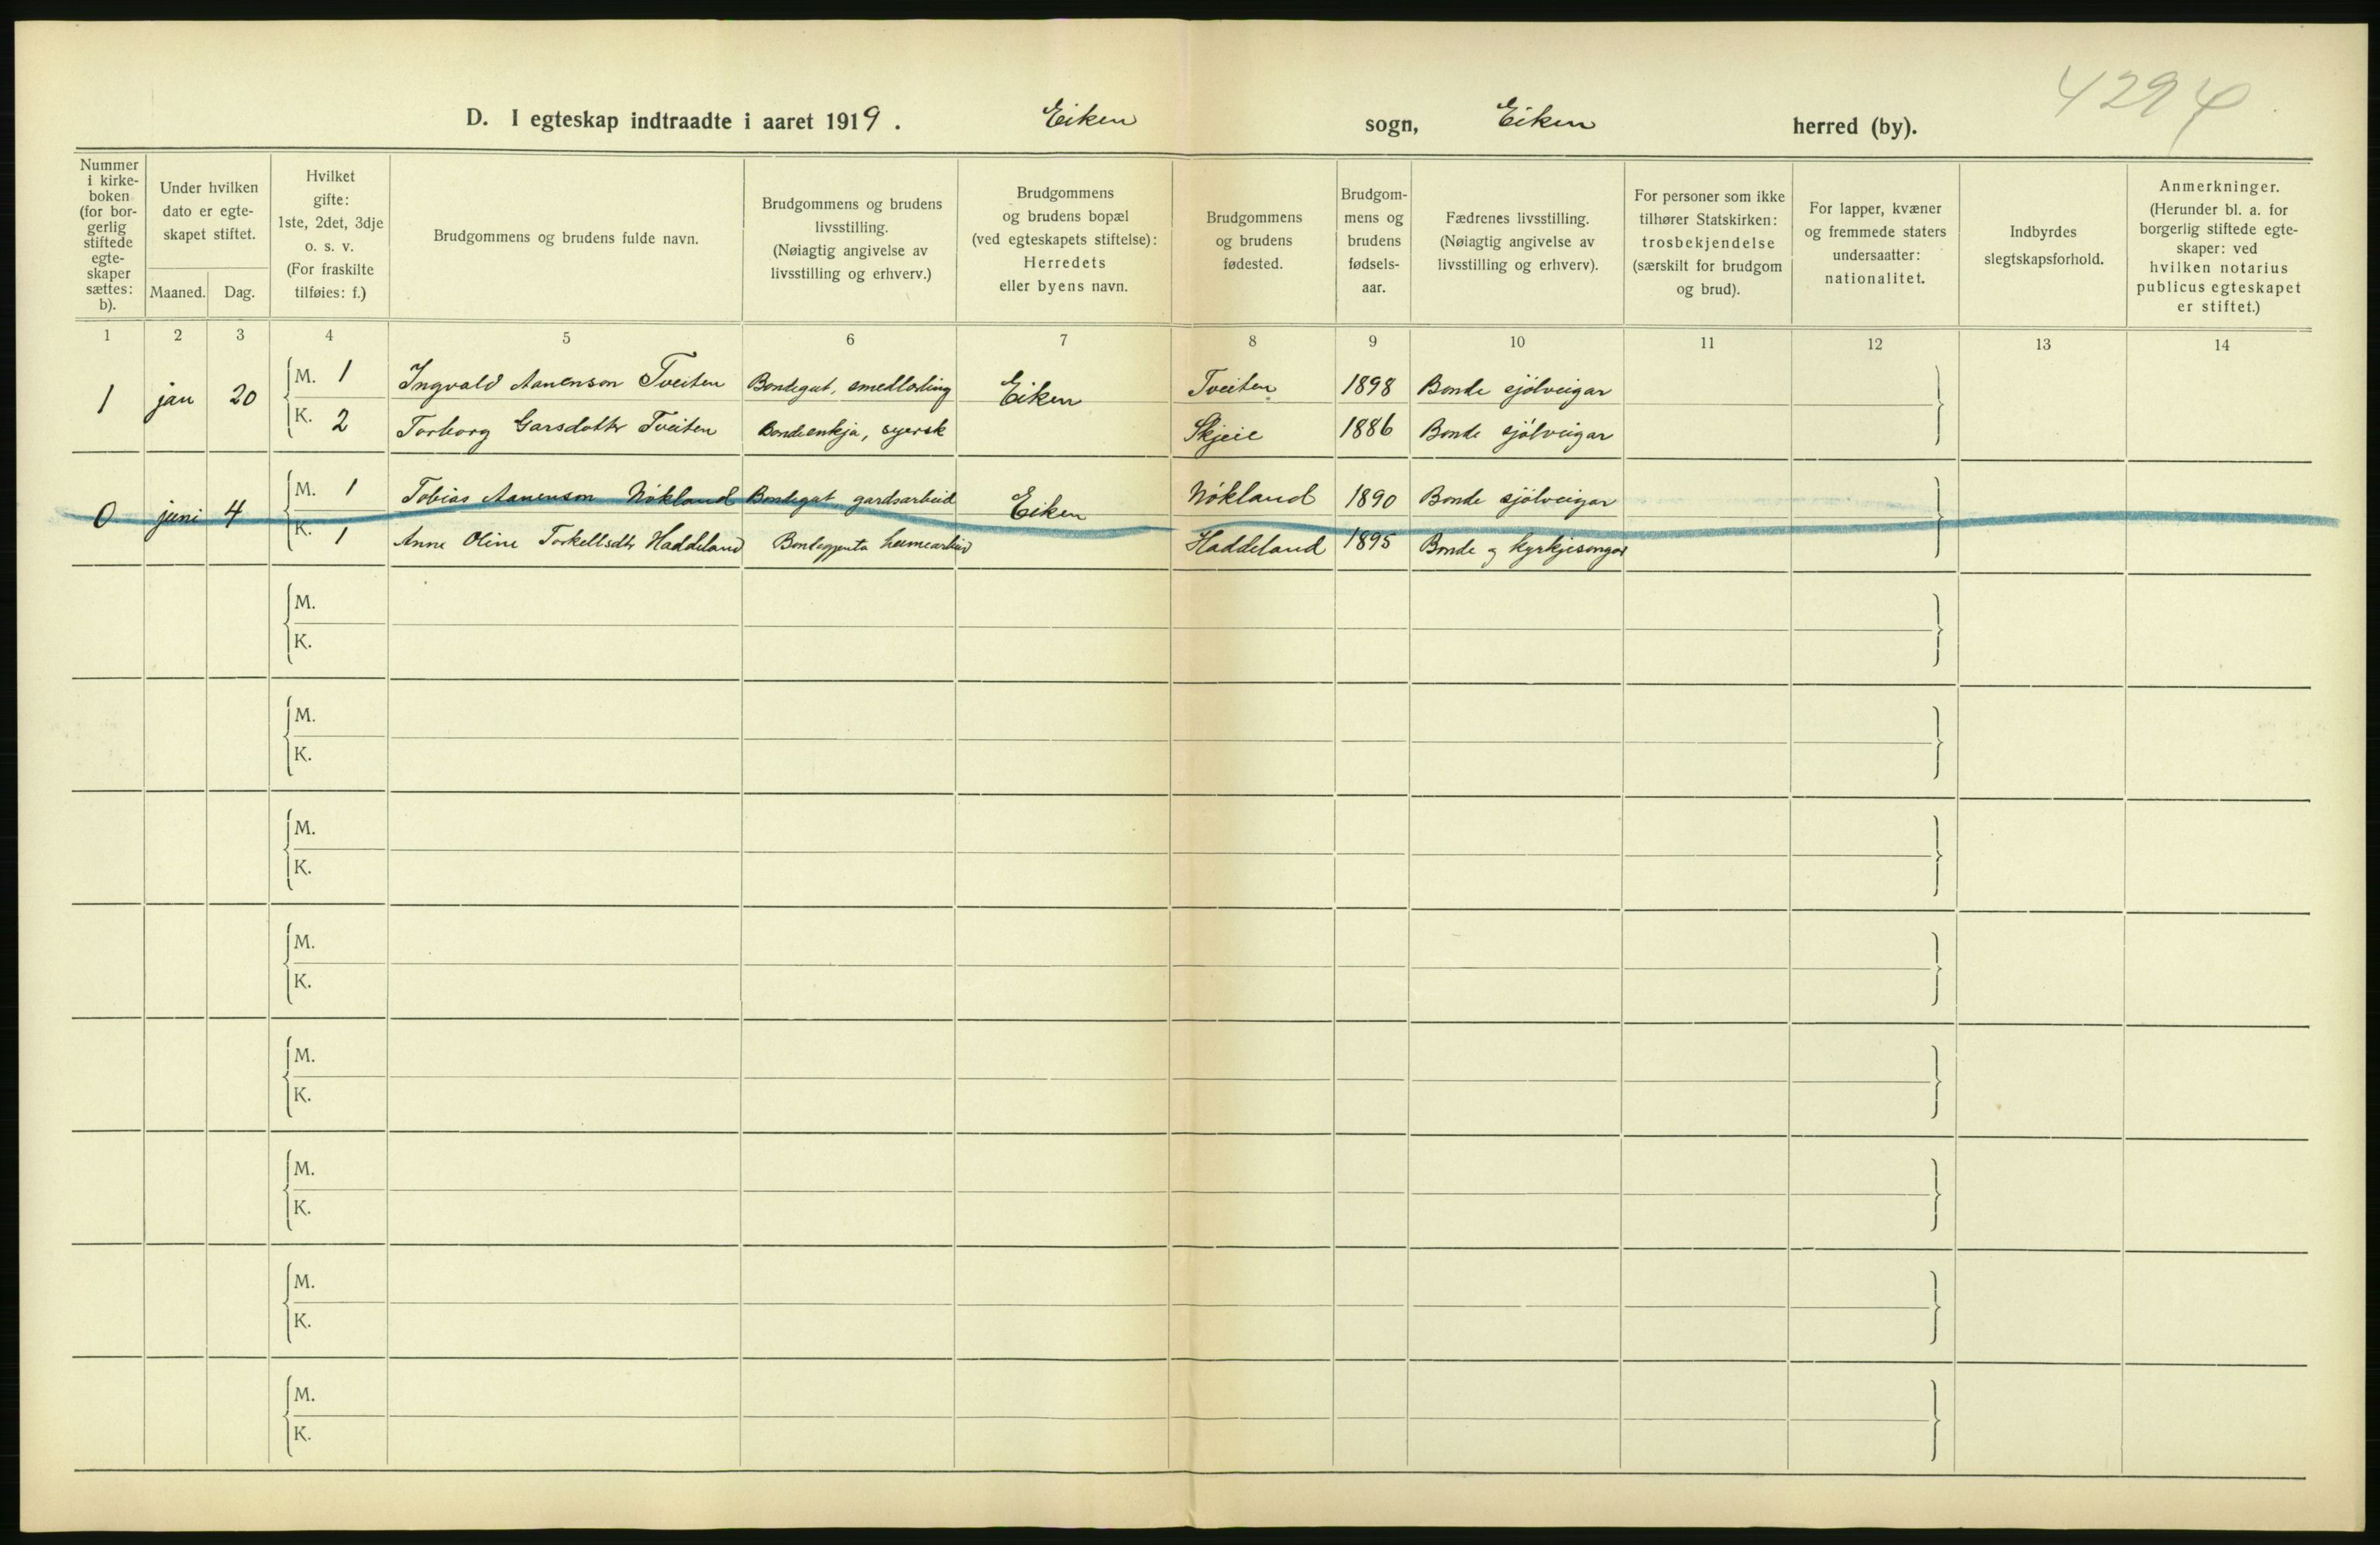 4294
D. I egteskap indtraadte i aaret 1919. Eiken sogn, Eiken herred (by).
Nummer i kirke- boken (for bor- gerlig stiftede egte- skaper sættes: b).
Under hvilken dato er egte- skapet stiftet.
Maaned. Dag.
Hvilket gifte: 1ste, 2det, 3dje o. s. v. (For fraskilte tilføies: f.)
Brudgommens og brudens fulde navn.
Brudgommens og brudens livsstilling. (Nøiagtig angivelse av livsstilling og erhverv.)
Brudgommens og brudens bopæl (ved egteskapets stiftelse): Herredets eller byens navn.
Brudgommens og brudens fødested.
Brudgom- mens og brudens fødsels- aar.
Fædrenes livsstilling. (Nøiagtig angivelse av livsstilling og erhverv).
For personer som ikke tilhører Statskirken: trosbekjendelse (særskilt for brudgom og brud).
For lapper, kvæner og fremmede staters undersaatter: nationalitet.
Indbyrdes slegtskapsforhold.
Anmerkninger. (Herunder bl. a. for borgerlig stiftede egte- skaper: ved hvilken notarius publicus egteskapet er stiftet.)
1 2 3 4 5 6 7 8 9 10 11 12 13 14
1 jan 20 M. 1 Ingvald Aanenson Tveiten Bondegut, smedlærling Eiken Tveiten 1898 Bonde sjölveigar
K. 2 Torborg Garsdotter Tveiten Bondeenkja, syersk Skjeie 1886 Bonde sjölveigar
0 juni 4 M. 1 Tobias Aanenson Nökland Bondegut gardsarbeid Eiken Nökland 1890 Bonde sjölveigar
K. 1 Anne Oline Torkellsdtr Haddeland Bondegjenta heimearbeid Haddeland 1895 Bonde og kyrkjesongar
M.
K.
M.
K.
M.
K.
M.
K.
M.
K.
M.
K.
M.
K.
M.
K.